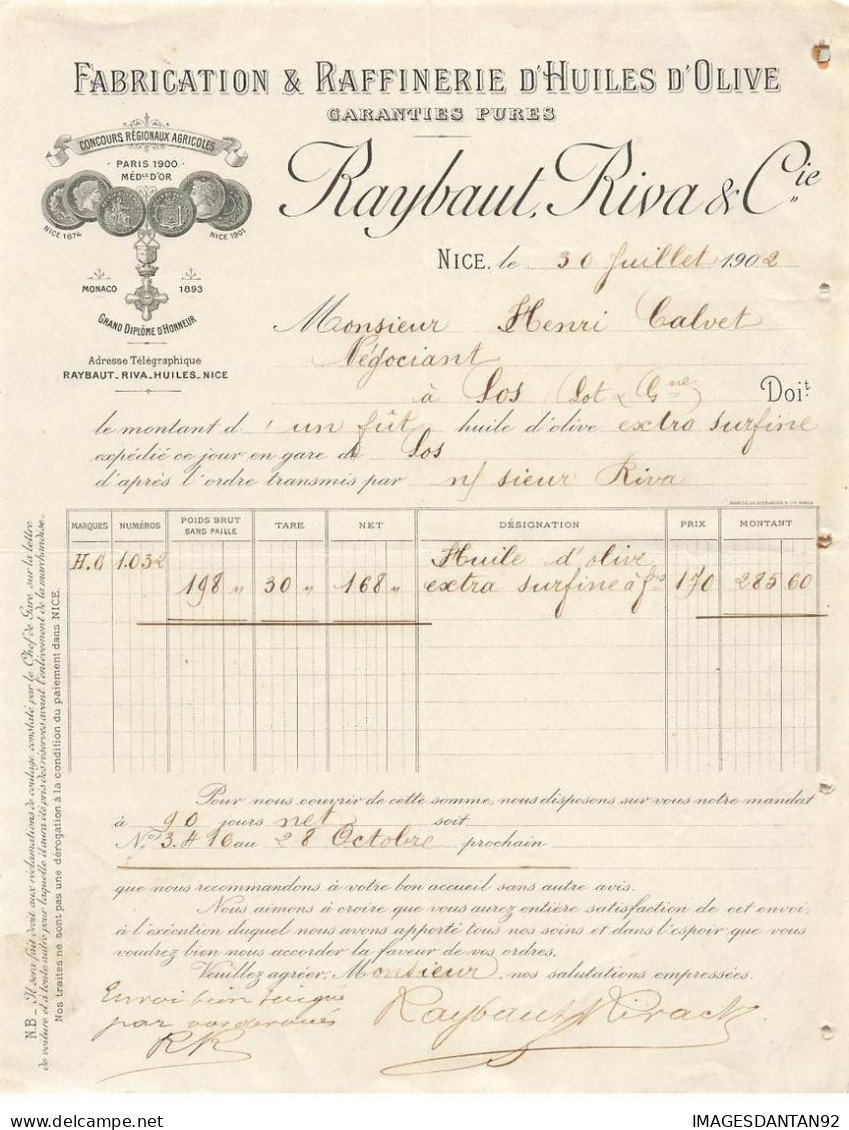 FABRICATION & RAFFINERIE D'HUILES D'OLIVE
GARANTIES PURES
CONCOURS RÉGIONAUX AGRICOLES
PARIS 1900
MÉD.LE D'OR
NICE 1874
NICE 1901
MONACO 1893
GRAND DIPLÔME D'HONNEUR
Adresse Télégraphique
RAYBAUT_RIVA_HUILES_NICE
Raybaut, Riva & Cie
NICE, le 30 Juillet 1902
Monsieur Henri Calvet
Négociant
à Sos (Lot & Gne) Doit
le montant d'un fût huile d'olive extra surfine
expédié ce jour en gare de Sos
d'après l'ordre transmis par n/ sieur Riva
MARQUES NUMÉROS POIDS BRUT SANS PAILLE TARE NET DÉSIGNATION PRIX MONTANT
H.C 1.032 Huile d'olive
198 " 30 " 168 " extra surfine à frs 170 285 60
Pour nous couvrir de cette somme, nous disposons sur vous notre mandat
à 90 jours net soit
No 3.416 au 28 Octobre prochain
que nous recommandons à votre bon accueil sans autre avis.
Nous aimons à croire que vous aurez entière satisfaction de cet envoi,
à l'exécution duquel nous avons apporté tous nos soins et dans l'espoir que vous
voudrez bien nous accorder la faveur de vos ordres,
Veuillez agréer, Monsieur, nos salutations empressées.
Envoi bien soigné
par vos dévoués
RR
Raybaut Riva & C
N.B._ Il sera fait droit aux réclamations de coulage constaté par le Chef de Gare sur la lettre
de voiture et à toute autre pour laquelle il aura été pris des réserves avant l'enlèvement de la marchandise.
Nos traites ne sont pas une dérogation à la condition du paiement dans NICE.
IMAGESDANTAN92